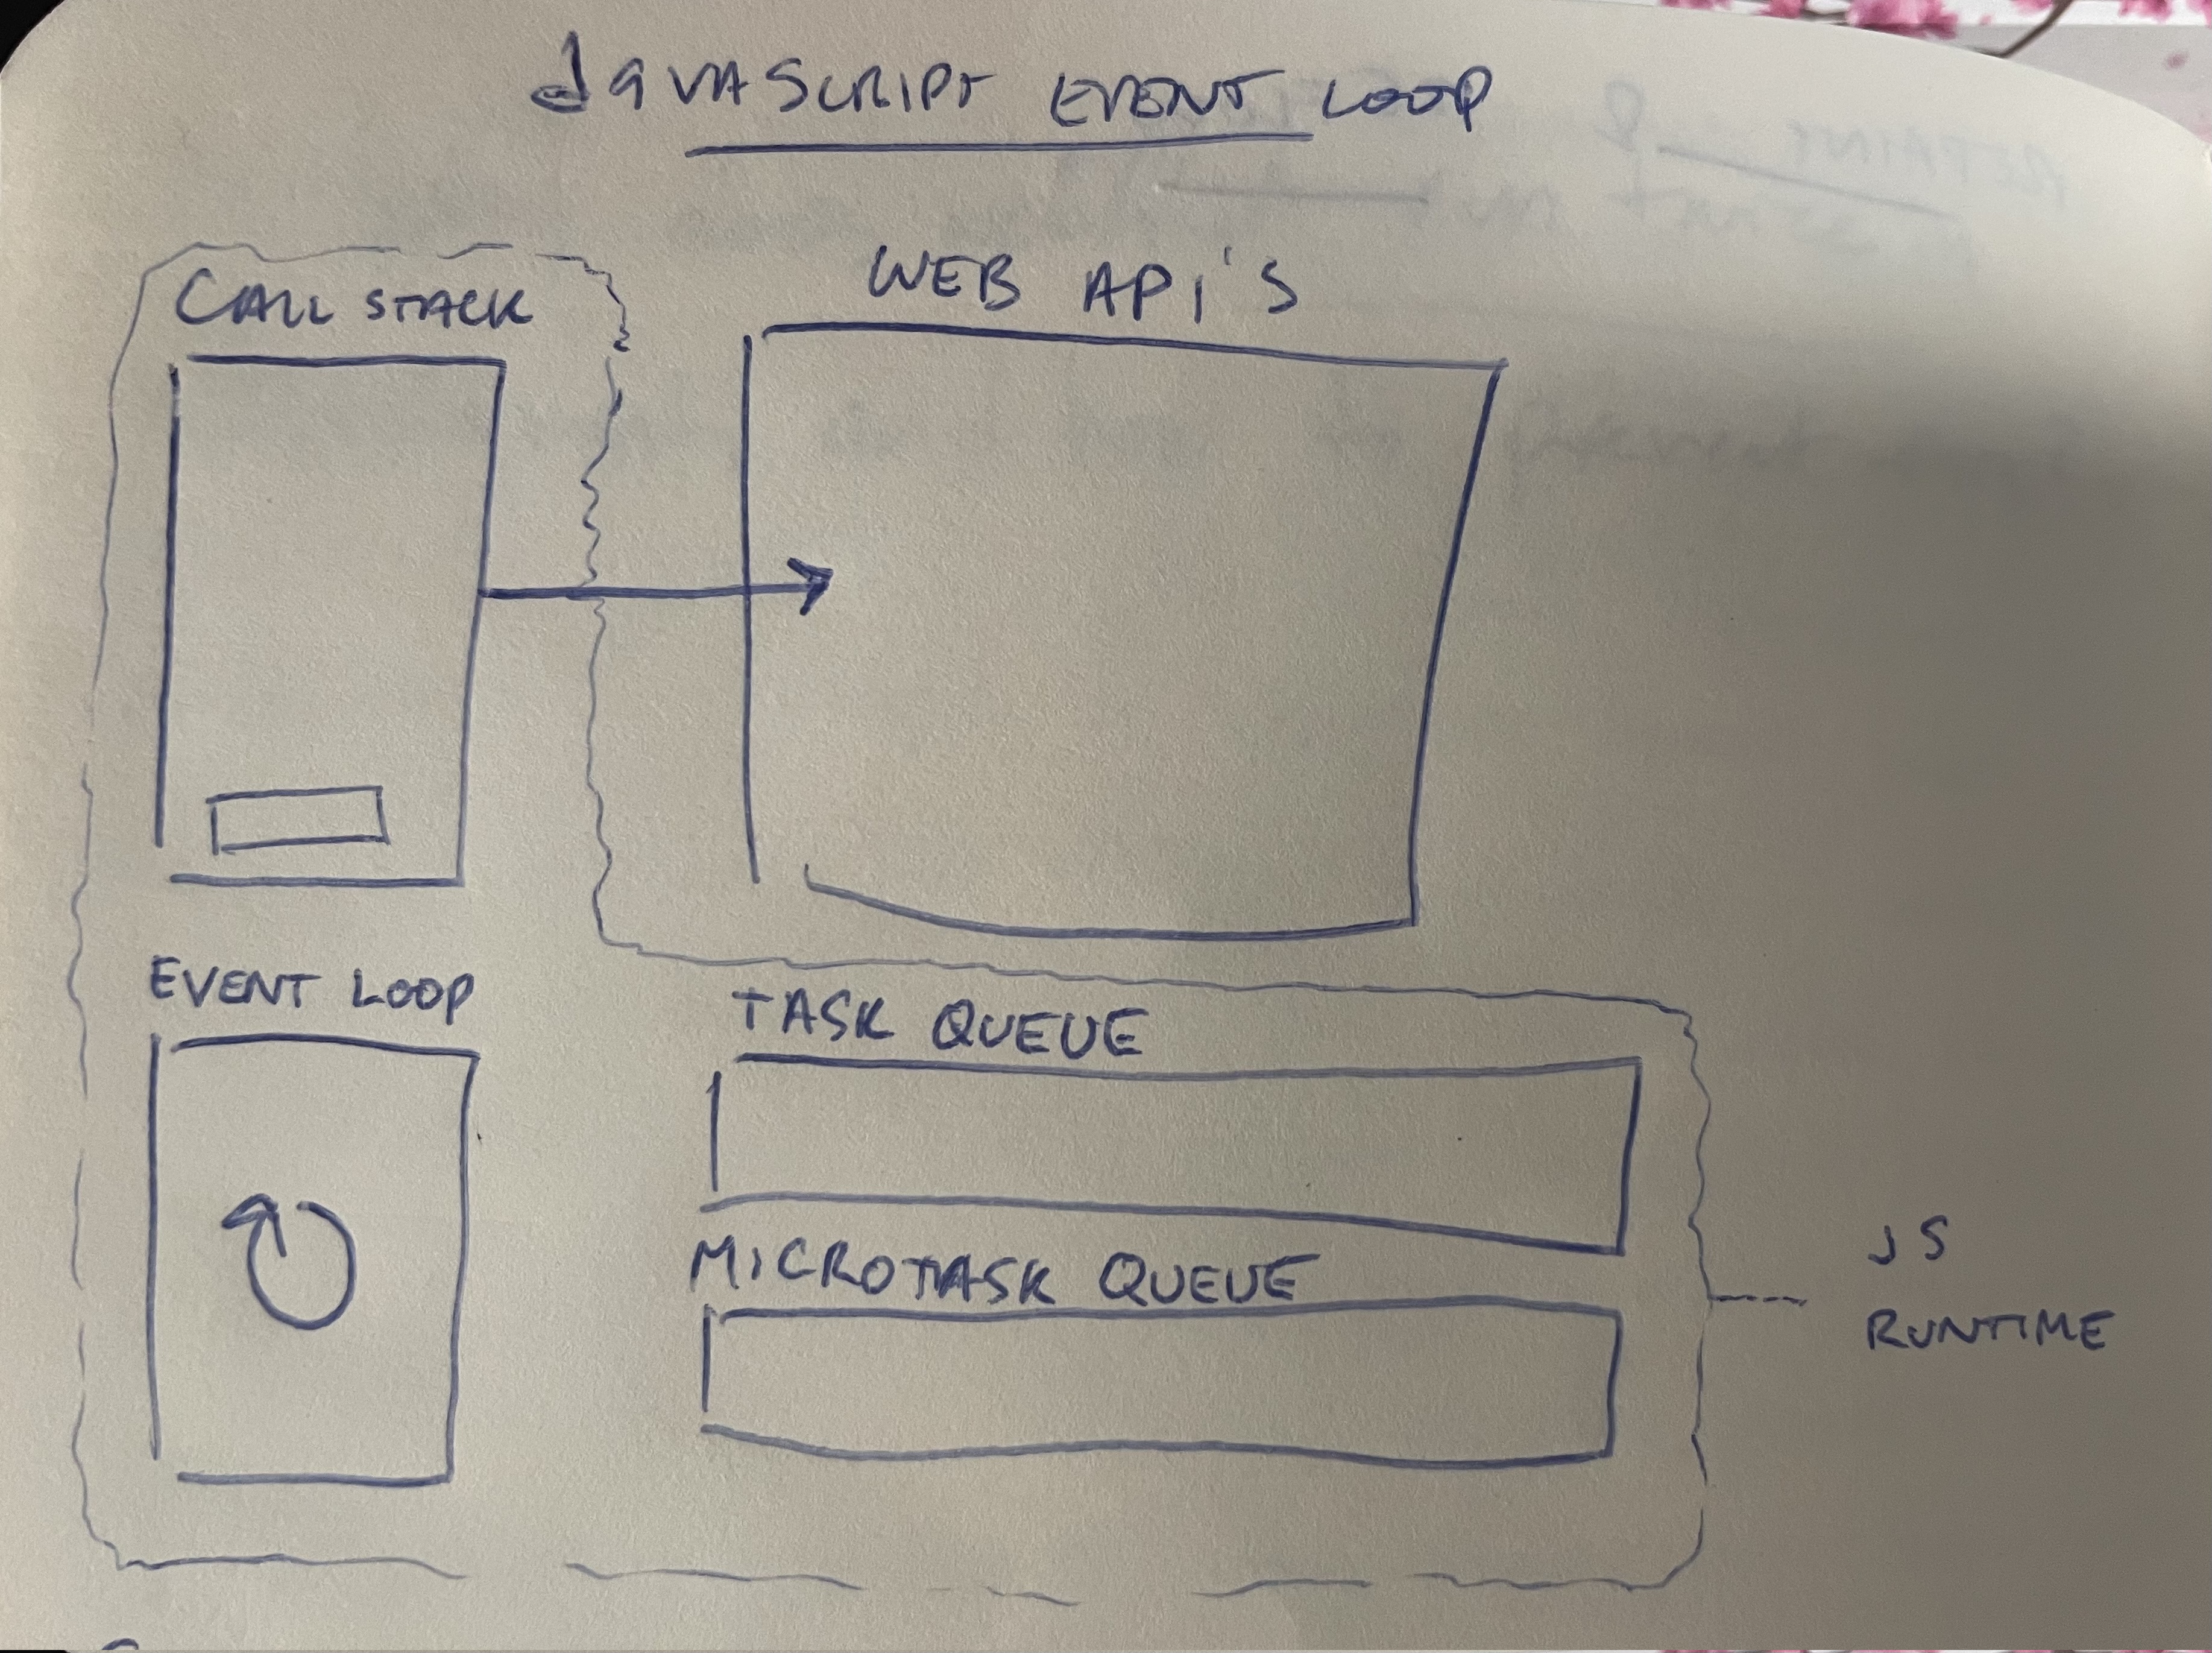 JAVASCRIPT EVENT LOOP
CALL STACK
WEB API'S
EVENT LOOP
TASK QUEUE
MICROTASK QUEUE
JS
RUNTIME